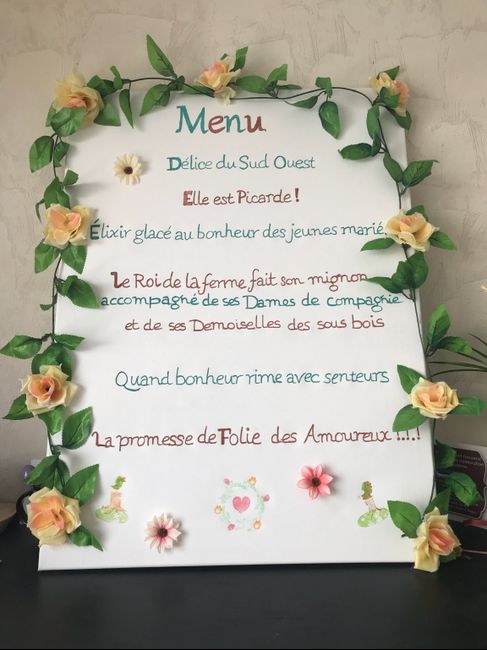 Menu
Délice du Sud Ouest
Elle est Picarde !
Élixir glacé au bonheur des jeunes marié
Le Roi de la ferme fait son mignon
accompagné de ses Dames de compagnie
et de ses Demoiselles des sous bois
Quand bonheur rime avec senteurs
La promesse de Folie des Amoureux !..!.!